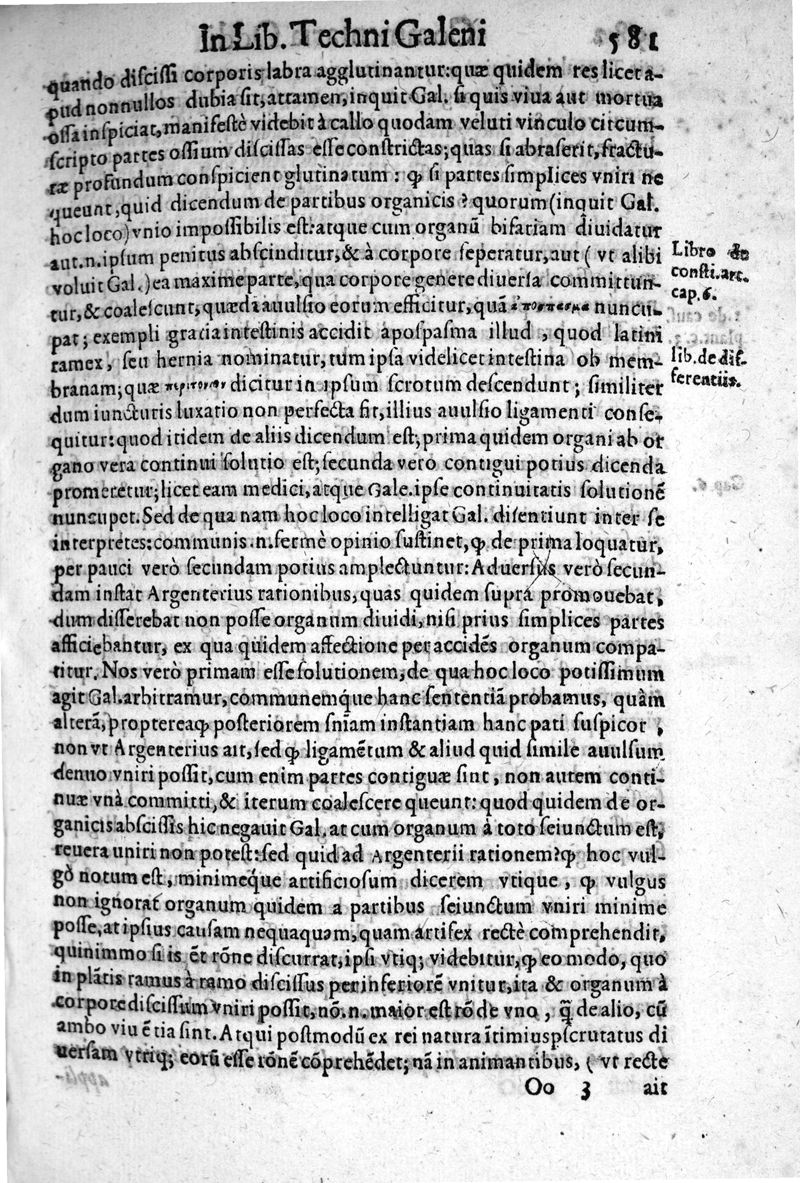 In Lib. Techni Galeni 581
quando discissi corporis labra agglutinantur: quæ quidem res licet a-
pud nonnullos dubia sit, attamen, inquit Gal. si quis viua aut mortua
ossa inspiciat, manifestè videbit à callo quodam veluti vinculo circum-
scripto partes ossium discissas esse constrictas; quas si abraserit, fractu-
ræ profundum conspicient glutinatum: ꝙ si partes simplices vniri ne
queunt, quid dicendum de partibus organicis? quorum (inquit Gal.
hoc loco) vnio impossibilis est: atque cum organū bifariam diuidatur
aut .n. ipsum penitus abscinditur, & à corpore seperatur, aut ( vt alibi
Libro de
voluit Gal.) ea maxime parte, qua corpore genere diuersa committun-
consti. art.
tur, & coalescunt, quædā auulsio eorum efficitur, quā nuncu-
cap. 6.
pat; exempli gracia intestinis accidit apospasma illud, quod latini
ramex, seu hernia nominatur, tum ipsa videlicet intestina ob mem-
lib. de dif-
branam; quæ dicitur in ipsum scrotum descendunt; similiter
ferentiis.
dum iuncturis luxatio non perfecta sit, illius auulsio ligamenti conse-
quitur: quod itidem de aliis dicendum est, prima quidem organi ab or
gano vera continui solutio est; secunda verò contigui potius dicenda
promeretur; licet eam medici, atque Gale. ipse continuitatis solutionē
nuncupet. Sed de qua nam hoc loco intelligat Gal. disentiunt inter se
interpretes: communis .n. fermè opinio sustinet, ꝙ de prima loquatur,
per pauci verò secundam potius amplectuntur: Aduersus verò secun-
dam instat Argenterius rationibus, quas quidem supra promouebat,
dum disserebat non posse organum diuidi, nisi prius simplices partes
afficiebantur, ex qua quidem affectione per accidēs organum compa-
titur. Nos verò primam esse solutionem, de qua hoc loco potissimum
agit Gal. arbitramur, communemq́ue hanc sententiā probamus, quàm
alterā, proptereaꝙ posteriorem sn̄iam instantiam hanc pati suspicor,
non vt Argenterius ait, sed ꝙ ligamētum & aliud quid simile auulsum
denuo vniri possit, cum enim partes contiguæ sint, non autem conti-
nuæ vnà committi, & iterum coalescere queunt: quod quidem de or-
ganicis abscissis hic negauit Gal. at cum organum à toto seiunctum est,
reuera uniri non potest: sed quid ad Argenterii rationem? ꝙ hoc vul-
gò notum est, minimeq́ue artificiosum dicerem vtique, ꝙ vulgus
non ignorat organum quidem a partibus seiunctum vniri minime
posse, at ipsius causam nequaquam, quam artifex rectè comprehendit,
quinimmo si is ēt rōne discurrat, ipsi vtiq; videbitur, ꝙ eo modo, quo
in plātis ramus à ramo discissus per inferiorē vnitur, ita & organum à
corpore discissum vniri possit, nō .n. maior est rō de vno, q̄ de alio, cū
ambo viuētia sint. Atqui postmodū ex rei natura ītimius pscrutatus di
uersam vtriq; eorū esse rōnē cōprehēdet; nā in animantibus, ( vt recte
Oo 3 ait